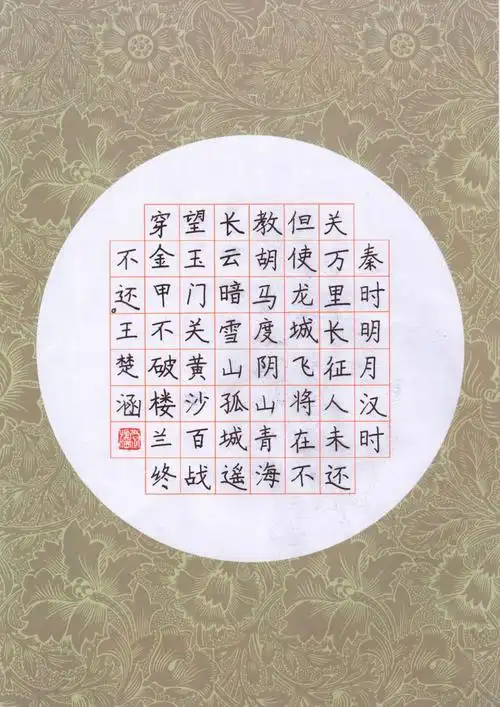 秦时明月汉时
关万里长征人未还
但使龙城飞将在不
教胡马度阴山青海
长云暗雪山孤城遥
望玉门关黄沙百战
穿金甲不破楼兰终
不还。王楚涵